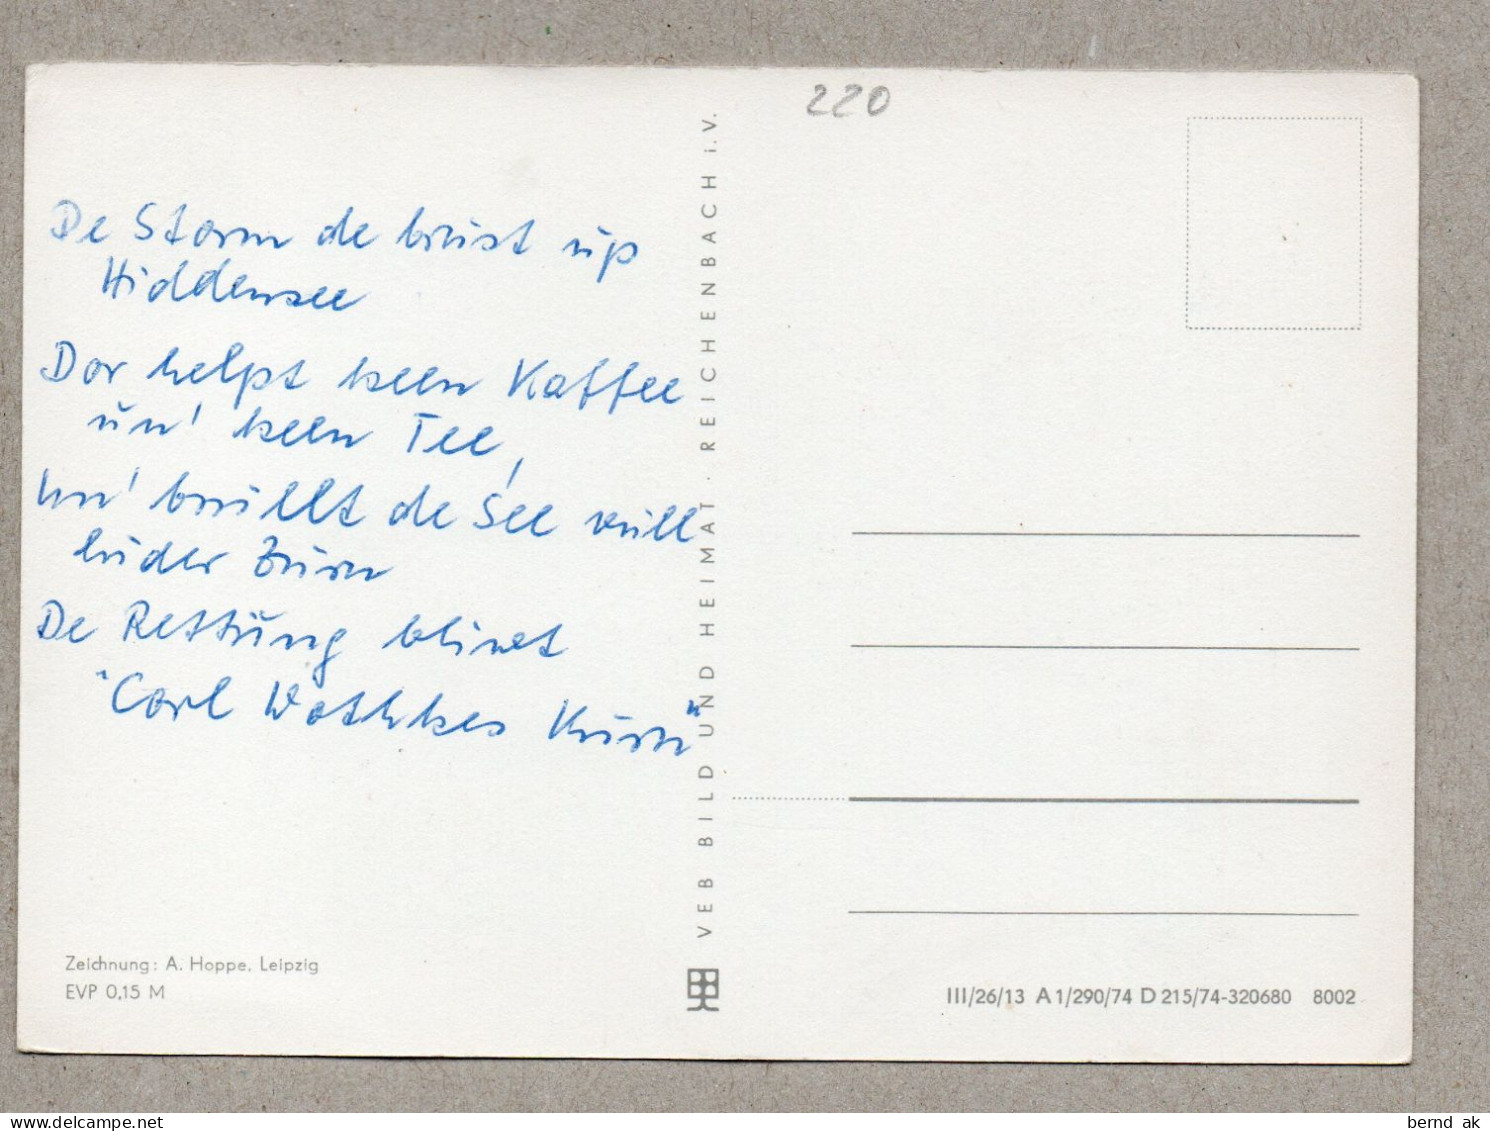 220
De Storm de brust up
Hiddensee
Dor helpt keen Kaffee
un' keen Tee,
Un' brüllt de See vull
luder Zurn
De Rettung blinet
"Carl Wothkes Kurn"
VEB BILD UND HEIMAT · REICHENBACH i.V.
Zeichnung: A. Hoppe, Leipzig
EVP 0,15 M
III/26/13 A 1/290/74 D 215/74-320680 8002
delcampe.net
bernd_ak